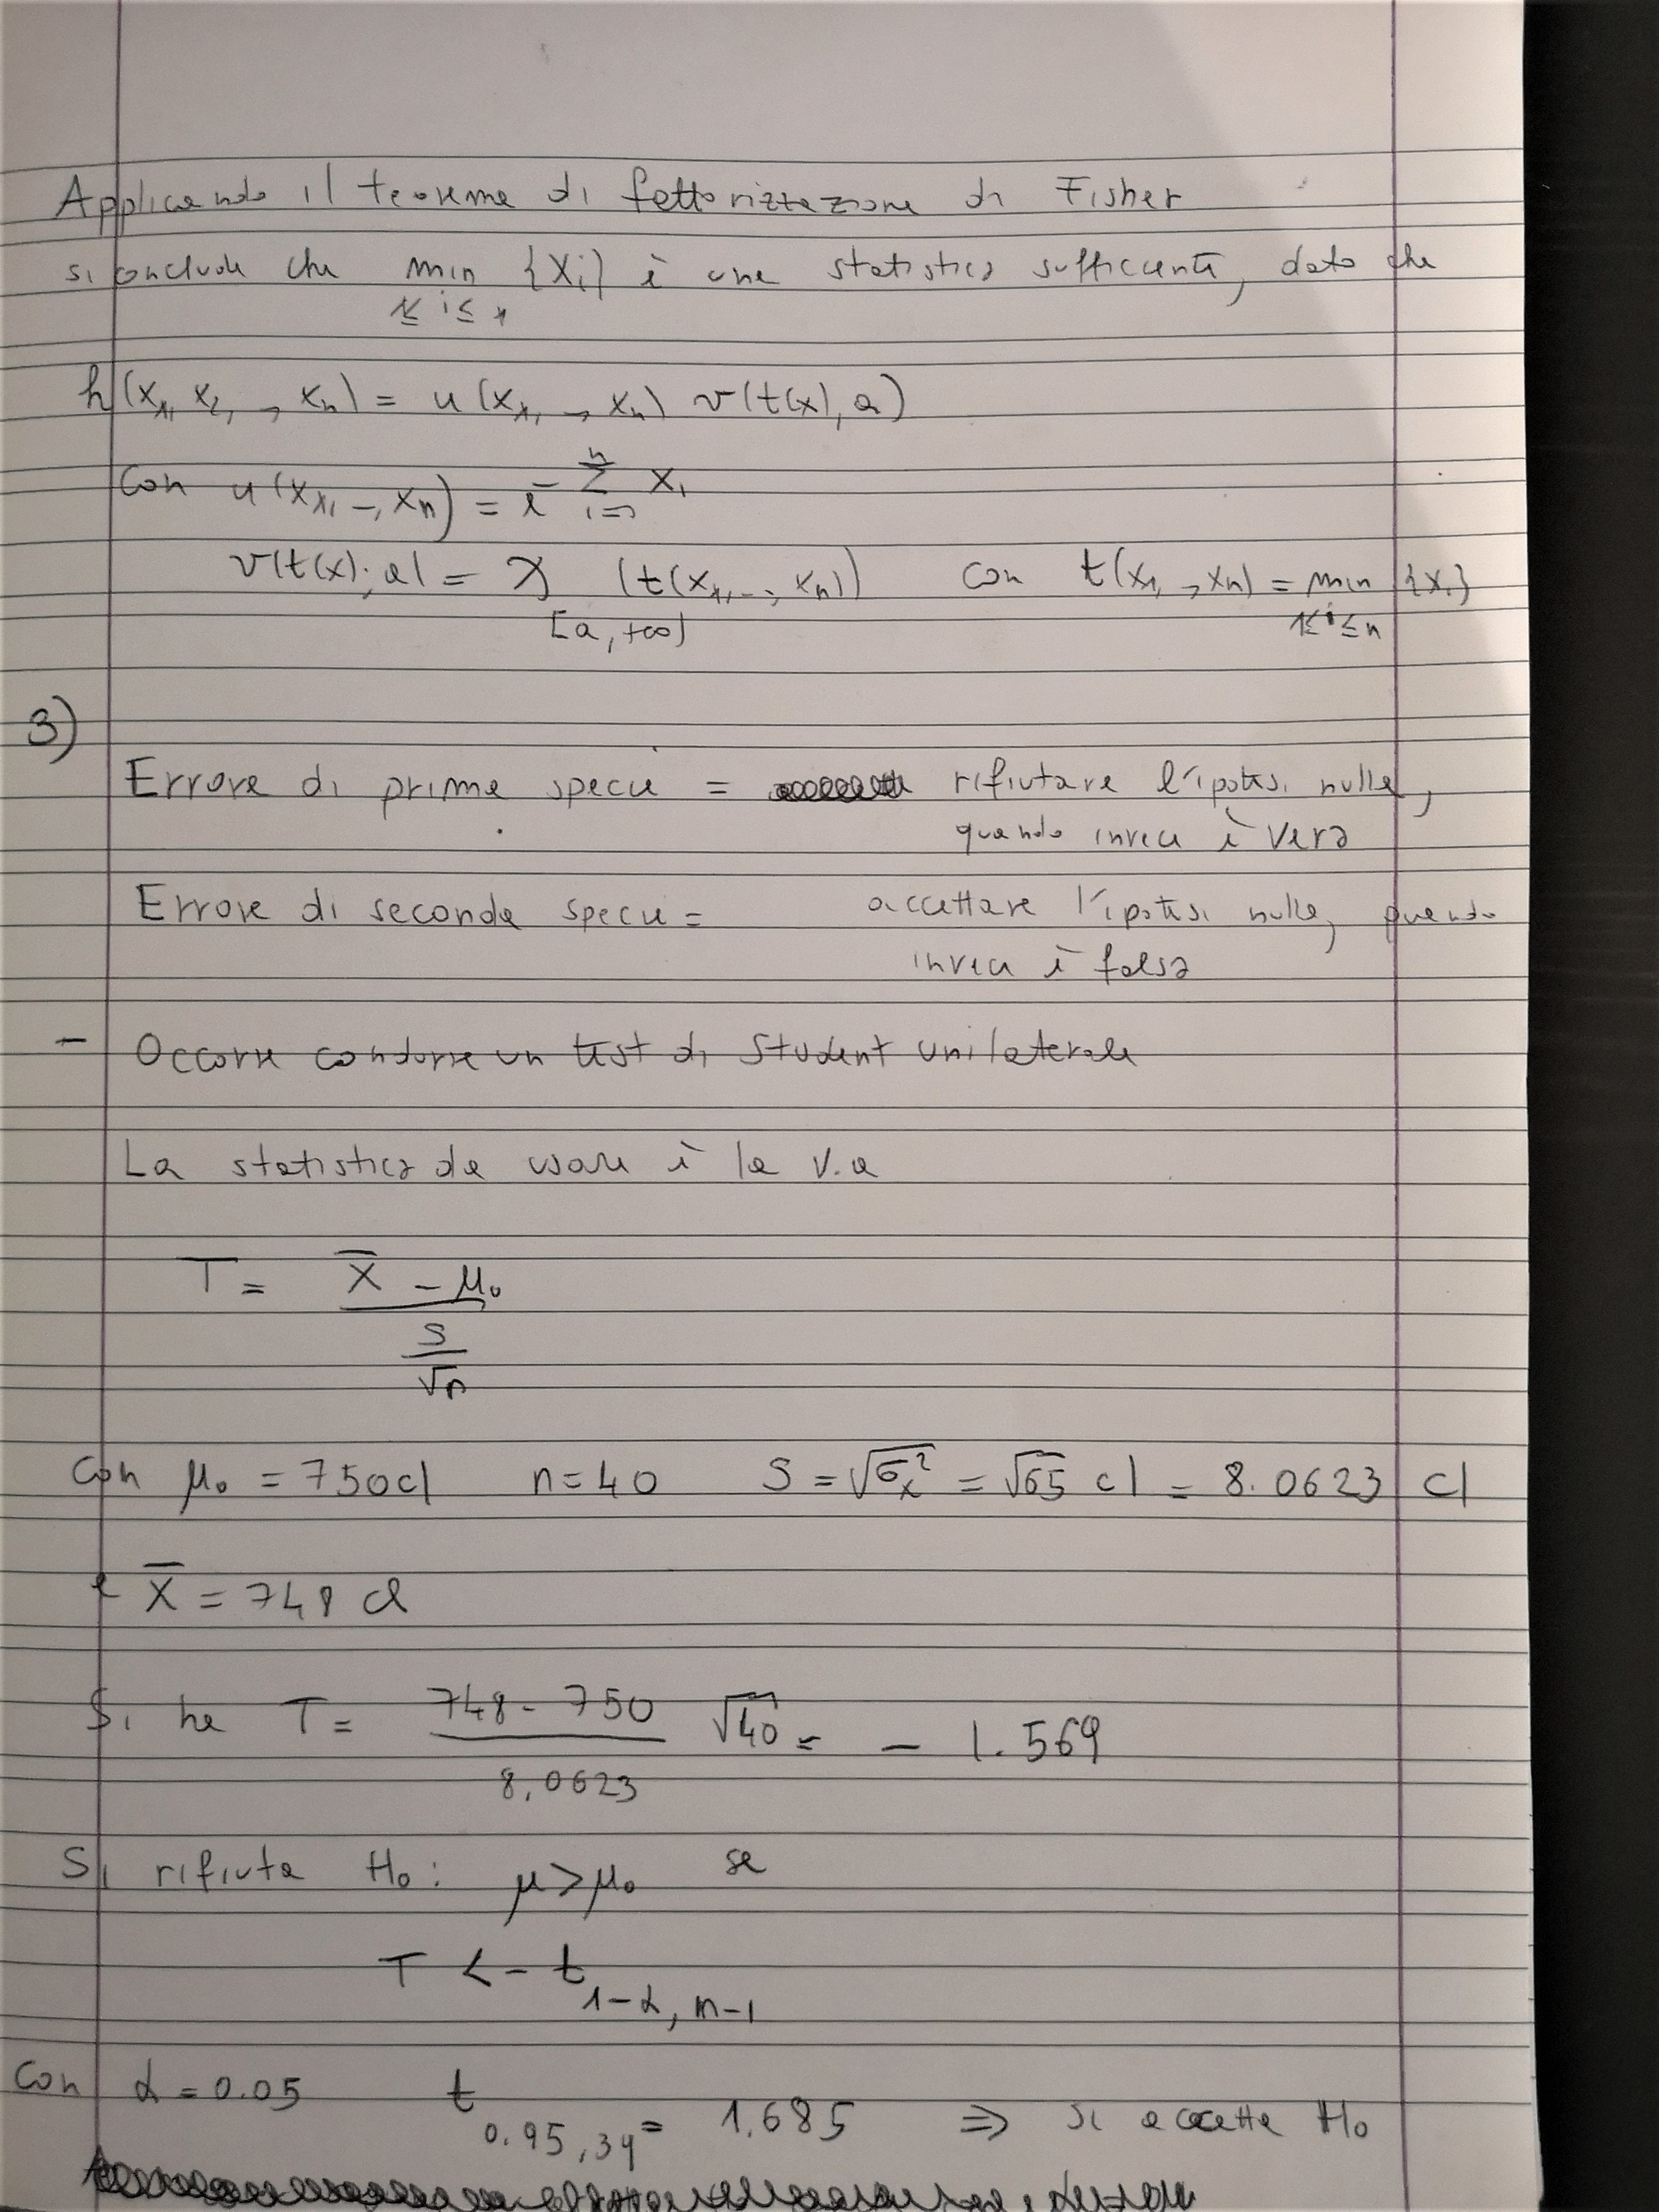 Applicando il teorema di fattorizzazione di Fisher
si conclude che min {Xi} è una statistica sufficiente, dato che
1≤ i ≤ n
h(x1, x2, , xn) = u(x1, , xn) v(t(x), a)
Con u(x1, –, xn) = e^-∑ xi
n
i=1
v(t(x); a) = χ (t(x1, –, xn)) con t(x1, , xn) = min {xi}
[a, +∞) 1≤i≤n
3)
Errore di prima specie = rifiutare l'ipotesi nulla,
quando invece è vera
Errore di seconda specie = accettare l'ipotesi nulla, quando
invece è falsa
– Occorre condurre un test di Student unilaterale
La statistica da usare è la v.a
T = X̄ – μ0
S
√n
Con μ0 = 750 cl n = 40 S = √σx² = √65 cl = 8.0623 cl
e X̄ = 748 cl
Si ha T = 748 - 750 √40 = – 1.569
8,0623
Si rifiuta H0: μ > μ0 se
T < – t
1-α, n-1
Con α = 0.05 t
0.95, 39 = 1.685 ⇒ si accetta H0